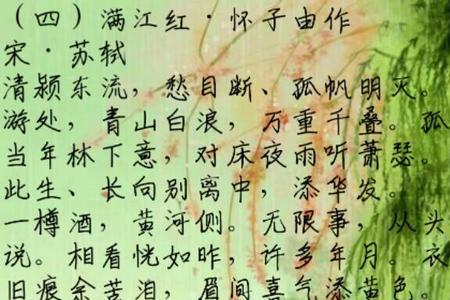 （四）满江红·怀子由作
宋·苏轼
清颍东流，愁目断、孤帆明灭。
游处，青山白浪，万重千叠。孤
当年林下意，对床夜雨听萧瑟。
此生、长向别离中，添华发。
一樽酒，黄河侧。无限事，从头
说。相看恍如昨，许多年月。衣
旧痕余苦泪，眉间喜气添黄色。